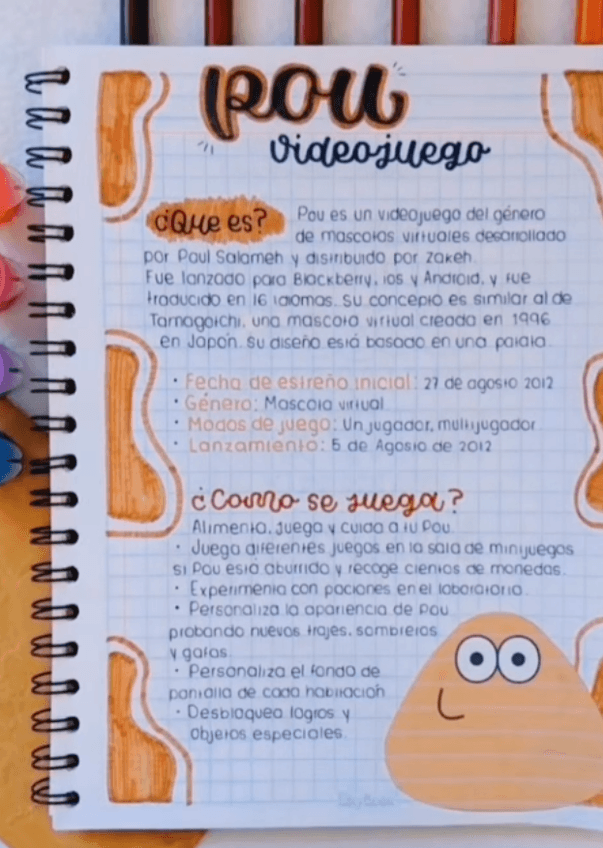 pou
videojuego
¿Que es? Pou es un videojuego del género
de mascotas virtuales desarrollado
por Paul Salameh y distribuido por Zakeh.
Fue lanzado para Blackberry, ios y Android, y fue
traducido en 16 idiomas. Su concepto es similar al de
Tamagotchi, una mascota virtual creada en 1996
en Japón. Su diseño está basado en una patata.
· Fecha de estreño inicial: 27 de agosto 2012
· Género: Mascota virtual
· Modos de juego: Un jugador, multijugador
· Lanzamiento: 5 de Agosto de 2012
¿Como se juega?
Alimenta, Juega y cuida a tu Pou.
· Juega diferentes juegos en la sala de minijuegos
si Pou está aburrido y recoge cientos de monedas.
· Experimenta con pociones en el laboratorio.
· Personaliza la apariencia de Pou
probando nuevos trajes, sombreros
y gafas.
· Personaliza el fondo de
pantalla de cada habitación
· Desbloquea logros y
objetos especiales.